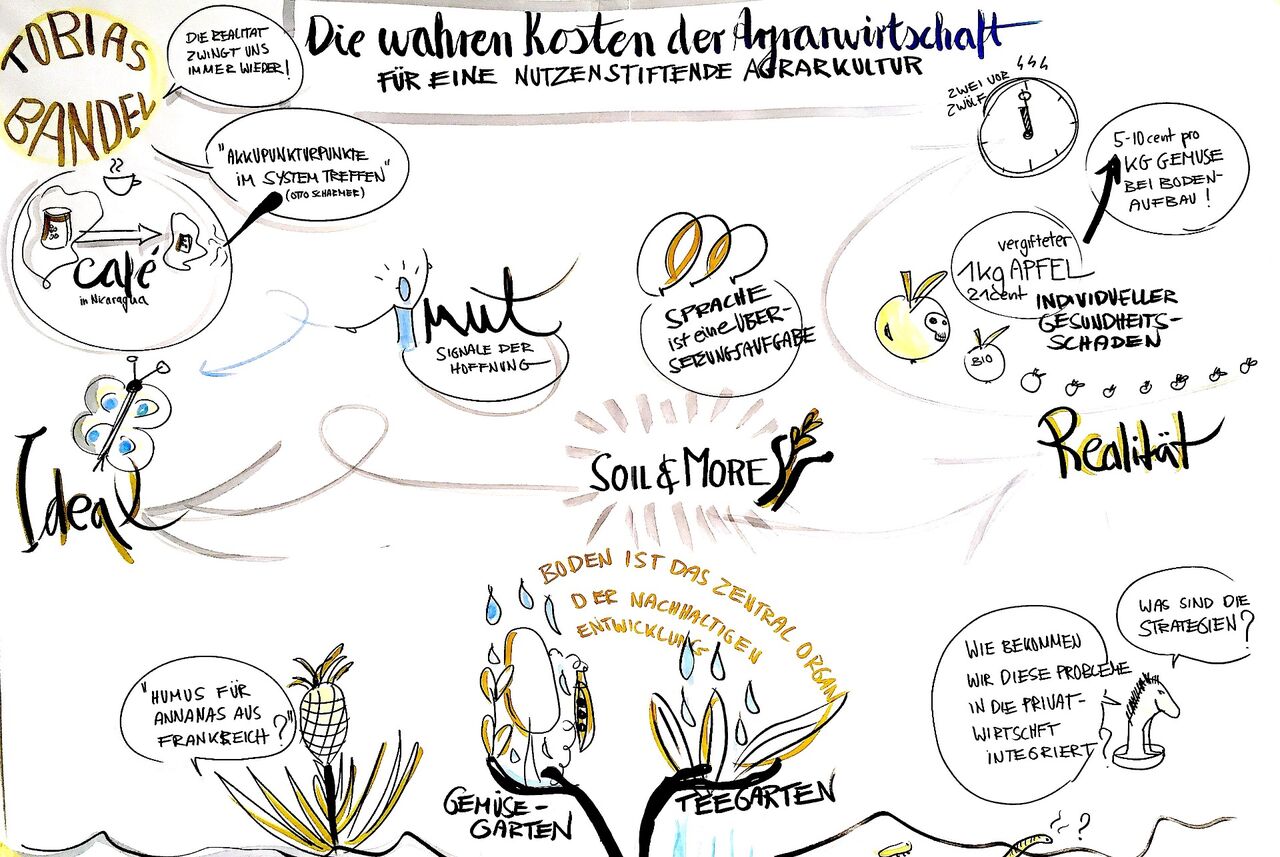 TOBIAS
BANDEL
DIE REALITÄT
ZWINGT UNS
IMMER WIEDER!
Die wahren Kosten der Agrarwirtschaft
FÜR EINE NUTZENSTIFTENDE AGRARKULTUR
"AKKUPUNKTURPUNKTE
IM SYSTEM TREFFEN"
(OTTO SCHARMER)
Café
in Nicaragua
ZWEI VOR
ZWÖLF
5-10 cent pro
KG GEMÜSE
BEI BODEN-
AUFBAU!
vergifteter
1kg APFEL
21 cent
INDIVIDUELLER
GESUNDHEITS-
SCHADEN
BIO
Mut
SIGNALE DER
HOFFNUNG
SPRACHE
ist eine ÜBER-
SETZUNGSAUFGABE
Ideal
SOIL & MORE
Realität
BODEN IST DAS ZENTRAL ORGAN
DER NACHHALTIGEN
ENTWICKLUNG
"HUMUS FÜR
ANNANAS AUS
FRANKREICH?"
GEMÜSE-
GARTEN
TEEGARTEN
WIE BEKOMMEN
WIR DIESE PROBLEME
IN DIE PRIVAT-
WIRTSCHFT
INTEGRIERT?
WAS SIND DIE
STRATEGIEN?
?